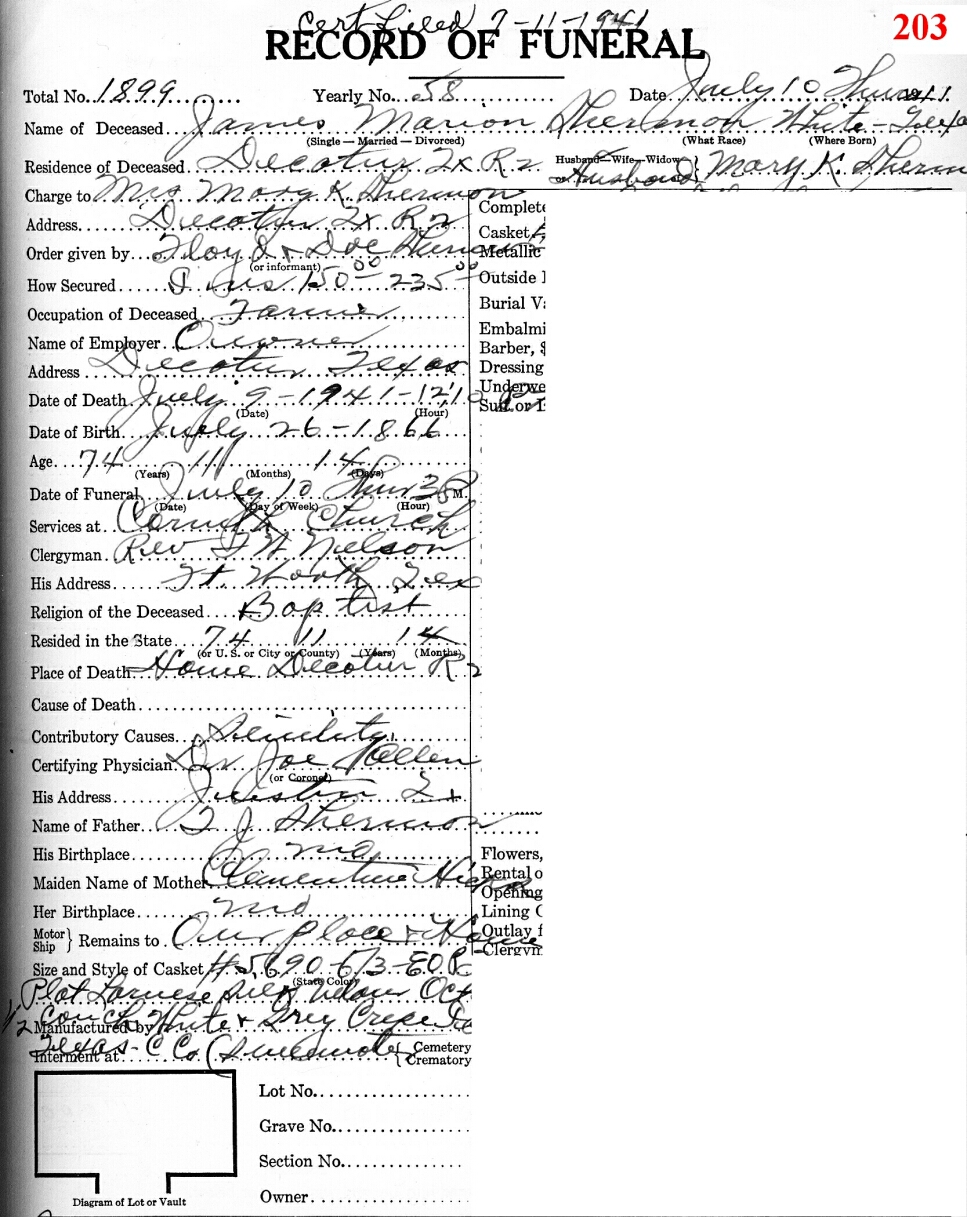 Cert Filed 7-11-1941
203
RECORD OF FUNERAL
Total No. 1899 Yearly No. 58 Date July 10 Thurs
Name of Deceased James Marion Shermon White - Texas
(Single — Married — Divorced) (What Race) (Where Born)
Residence of Deceased Decatur Tx R2 Husband—Wife—Widow Mary K. Sherm
or Husband
Charge to Mrs Mary K. Shermon
Complete
Address Decatur Tx R2
Casket
Order given by Floyd & Doc
Metallic
(or informant)
How Secured 150 00 235 00
Outside I
Burial Va
Occupation of Deceased Farmer
Embalmi
Name of Employer Owner
Barber, $
Address Decatur Texas
Dressing
Underwe
Date of Death July 9 - 1941 - 12:10 P
Suit or D
(Date) (Hour)
Date of Birth July 26 - 1866
Age 74 11 14
(Years) (Months) (Days)
Date of Funeral July 10 Thur 3 P M.
(Date) (Day of Week) (Hour)
Services at Church
Clergyman Rev Nielson
His Address Ft Worth Tex
Religion of the Deceased Baptist
Resided in the State 74 11 14
(or U. S. or City or County) (Years) (Months)
Place of Death Home Decatur R2
Cause of Death
Contributory Causes
Certifying Physician Dr Joe Allen
(or Coroner)
His Address Justin Tx
Name of Father T J Shermon
His Birthplace Mo
Flowers,
Maiden Name of Mother Clementine
Rental o
Opening
Her Birthplace Mo
Lining C
Motor Ship } Remains to Our place & Home
Outlay f
Clergym
Size and Style of Casket
(State Color)
Plat Silk Oct
1/2 Couch White & Grey Crepe
Manufactured by
Texas - C Co
Interment at { Cemetery
Crematory
Lot No.
Grave No.
Section No.
Owner
Diagram of Lot or Vault